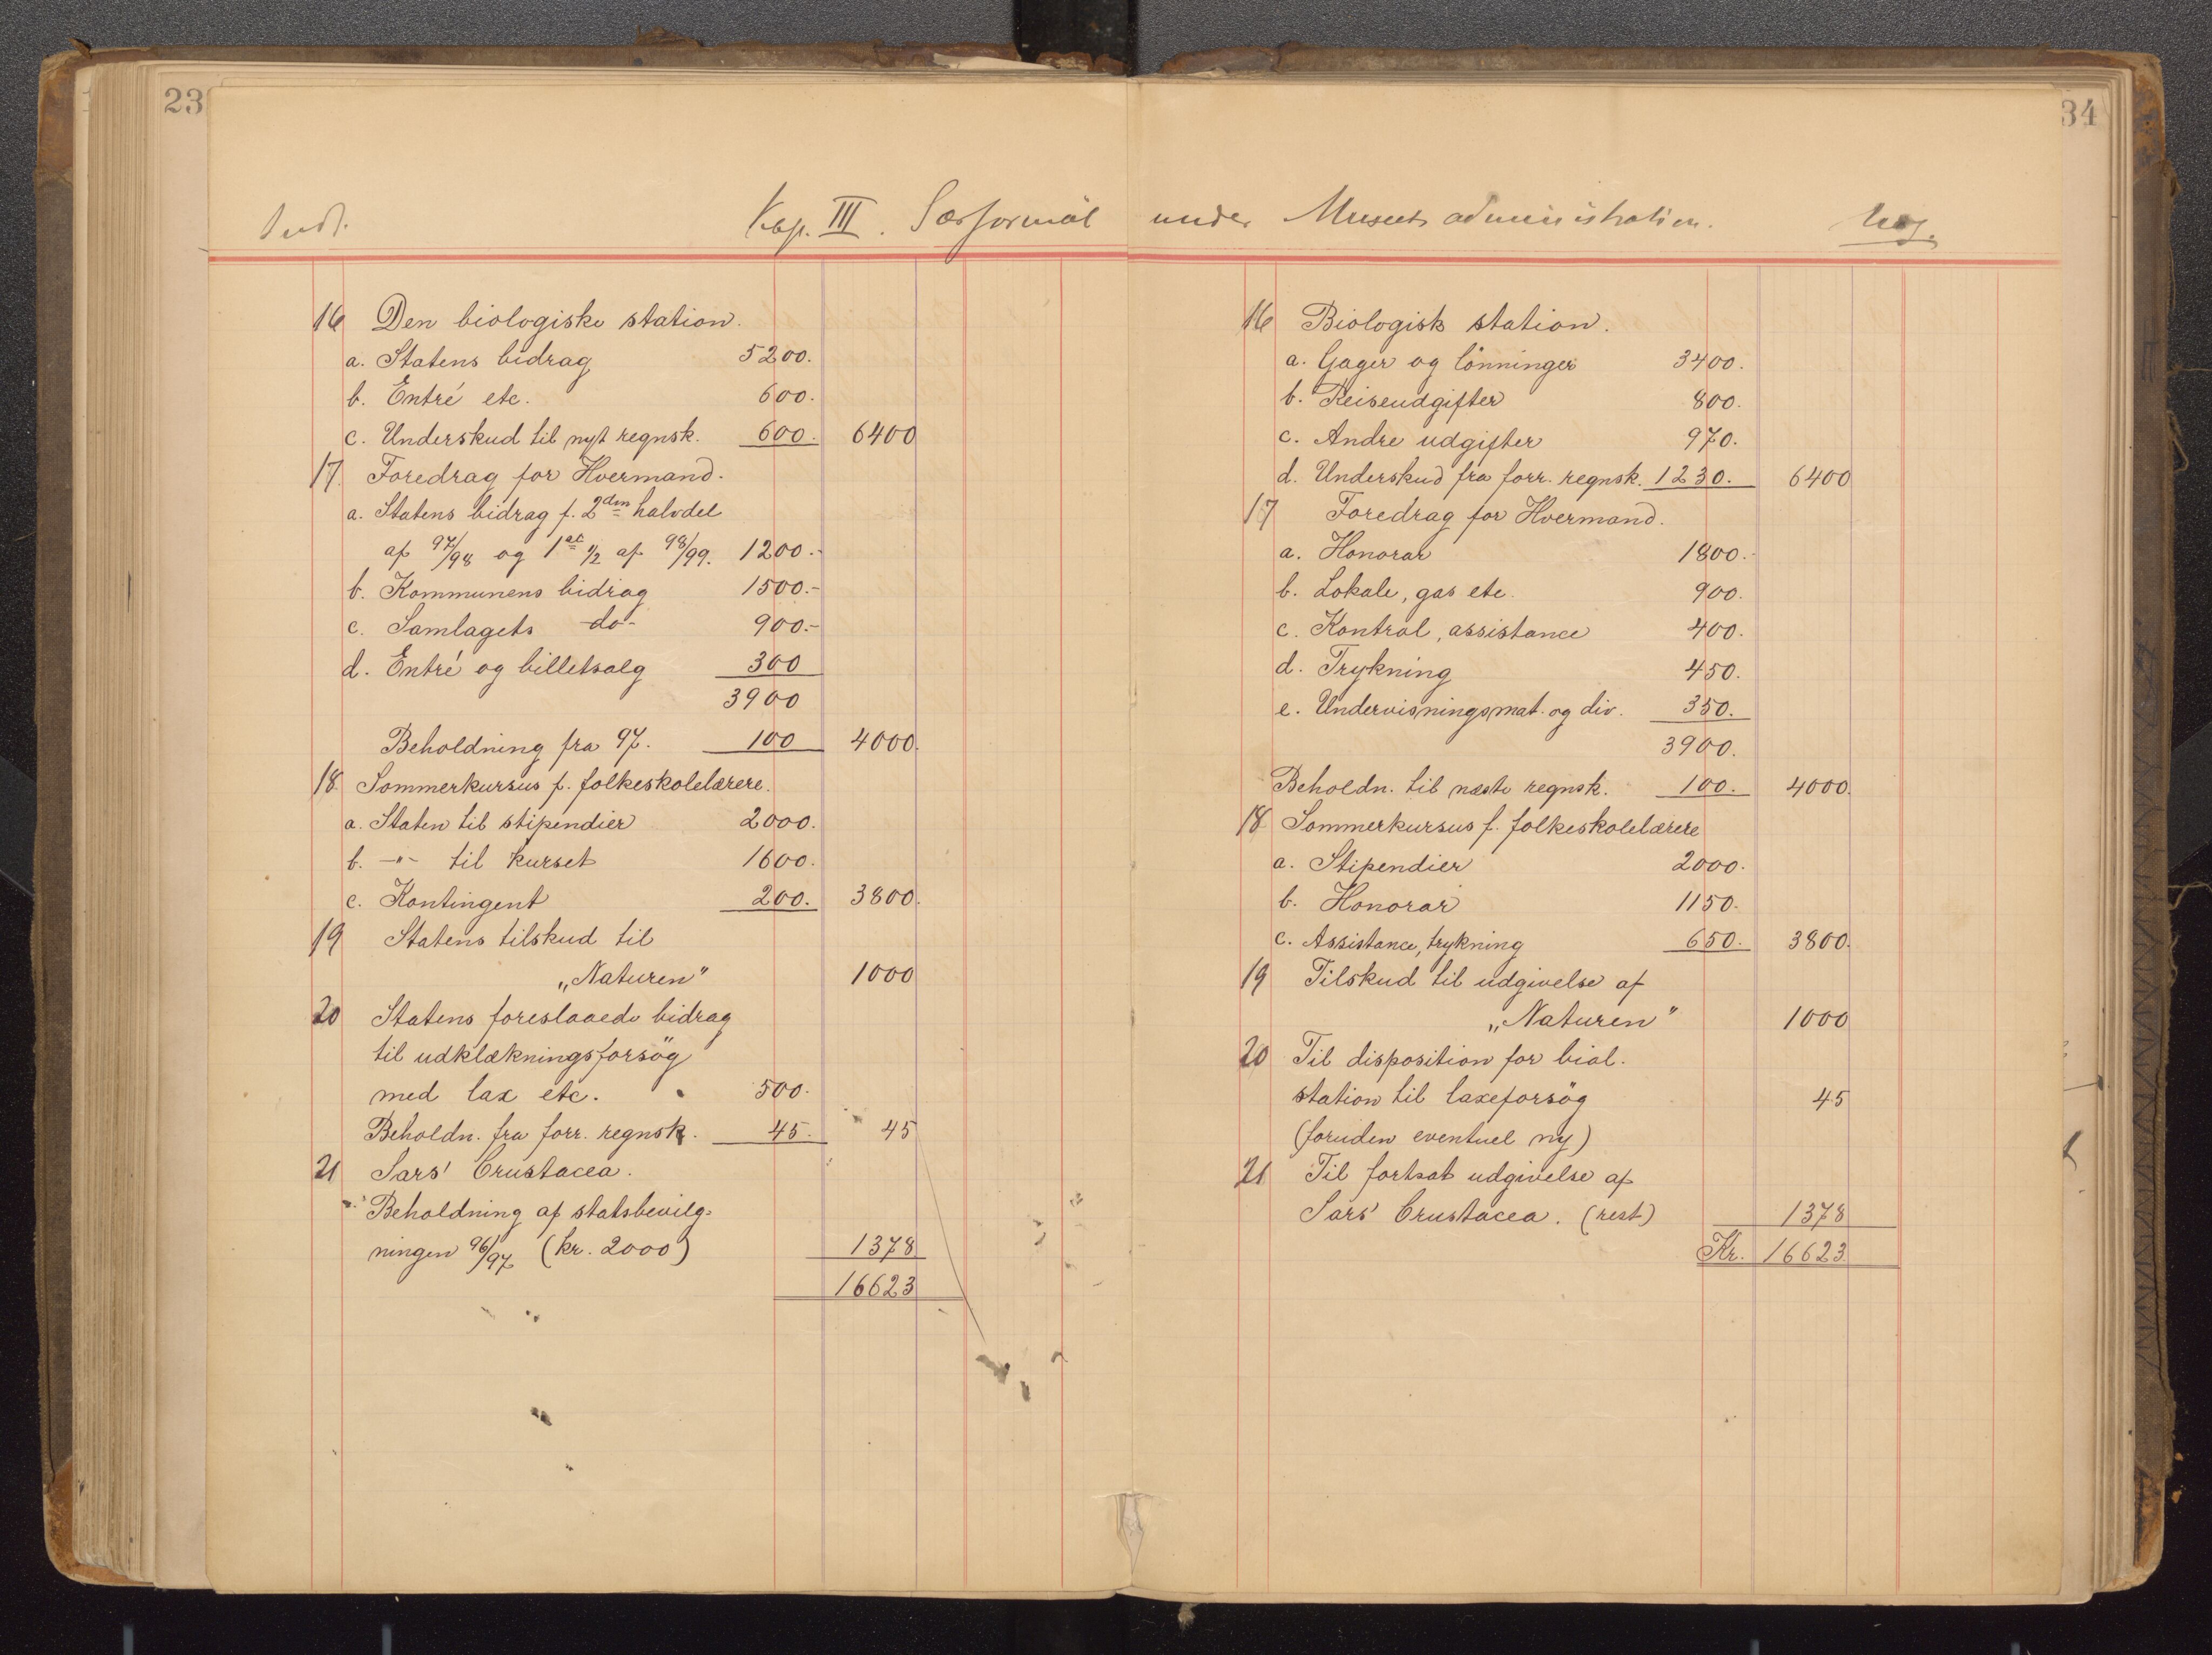 23
34
Indt.
Kap. III. Særformål under Museets administration.
Udg.
16 Den biologiske station.
a. Statens bidrag 5200.
b. Entré etc. 600.
c. Underskud til nyt regnsk. 600. 6400
17. Foredrag for Hvermand.
a. Statens bidrag f. 2den halvdel
af 97/98 og 1ste 1/2 af 98/99. 1200.-
b. Kommunens bidrag 1500.-
c. Samlagets -do- 900.-
d. Entré og billetsalg 300
3900
Beholdning fra 97. 100 4000.
18. Sommerkursus f. folkeskolelærere.
a. Staten til stipendier 2000.
b. -"- til kurset 1600.
c. Kontingent 200. 3800.
19 Statens tilskud til
„Naturen" 1000
20 Statens foreslaaede bidrag
til udklækningsforsög
med lax etc. 500.
Beholdn. fra forr. regnsk. 45. 45
21 Sars' Crustacea.
Beholdning af statsbevilg-
ningen 96/97 (kr. 2000) 1378
16623
16 Biologisk station.
a. Gager og lönninger 3400.
b. Reiseudgifter 800.
c. Andre udgifter 970.
d. Underskud fra forr. regnsk. 1230. 6400
17 Foredrag for Hvermand.
a. Honorar 1800.-
b. Lokale, gas etc. 900.
c. Kontrol, assistance 400.
d. Trykning 450.
e. Undervisningsmat. og div. 350.
3900.
Beholdn. til næste regnsk. 100. 4000.
18 Sommerkursus f. folkeskolelærere
a. Stipendier 2000.
b. Honorar 1150.
c. Assistance, trykning 650. 3800.
19 Tilskud til udgivelse af
„Naturen" 1000
20 Til disposition for biol.
station til laxeforsög 45
(foruden eventuel ny)
21 Til fortsat udgivelse af
Sars' Crustacea. (rest) 1378
Kr. 16623.